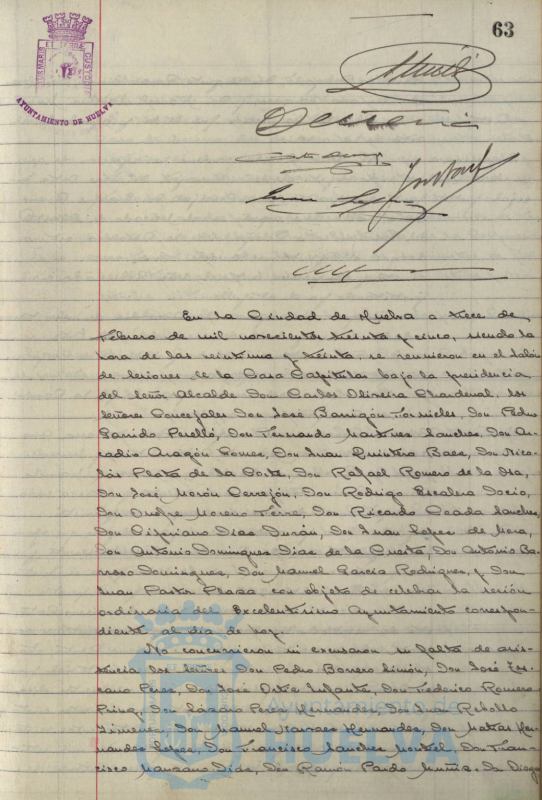 63
AYUNTAMIENTO DE HUELVA
En la Ciudad de Huelva a trece de
Febrero de mil novecientos treinta y cinco, siendo la
hora de las veintiuna y treinta, se reunieron en el Salón
de sesiones de la Casa Capitular bajo la presidencia
del Señor Alcalde Don Carlos Oliveira Chardenal, los
Señores Concejales Don José Barrigón Fornieles, Don Pedro
Garrido Perelló, Don Fernando Martinez Sanchez, Don Ar-
cadio Aragón Gomez, Don Juan Quintero Baez, Don Nico-
lás Plata de la Corte, Don Rafael Romero de la Osa,
Don José Morón Cerrejón, Don Rodrigo Escalera Socio,
Don Onofre Moreno Ferre, Don Ricardo Sanchez,
Don Cipriano Dias Durán, Don Juan Lopez de Mora,
Don Antonio Dominguez Diaz de la Cuesta, Don Antonio Ba-
rroso Dominguez, Don Manuel Garcia Rodriguez, y Don
Juan Pastor Plaza con objeto de celebrar la sesión
ordinaria del Excelentisimo Ayuntamiento correspon-
diente al dia de hoy.
No concurrieron ni excusaron su falta de asis-
tencia los señores Don Pedro Borrero Limón, Don José Es-
cano Perez, Don José Ortiz Infante, Don Federico Romero
Don Lázaro Perez Hernandez, Don Juan Rebollo
Jimenez, Don Manuel Narvaez Hernandez, Don Matias Her-
nandez Lopez, Don Francisco Sanchez Montiel, Don Fran-
cisco Manzano Dias, Don Ramón Pardo Muñiz, Don Diego
Ayuntamiento de
HUELVA